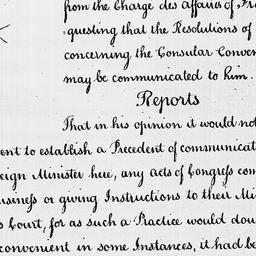 from the Chargé des Affaires of
questing that the Resolutions of
concerning the Consular Conven
may be communicated to him.
Reports
That in his opinion it would not
ent to establish a Precedent of communicat
eign Minister here, any acts of Congress com
usiness or giving Instructions to their Mi
s Court, for as such a Practice would dou
convenient in some Instances, it had be